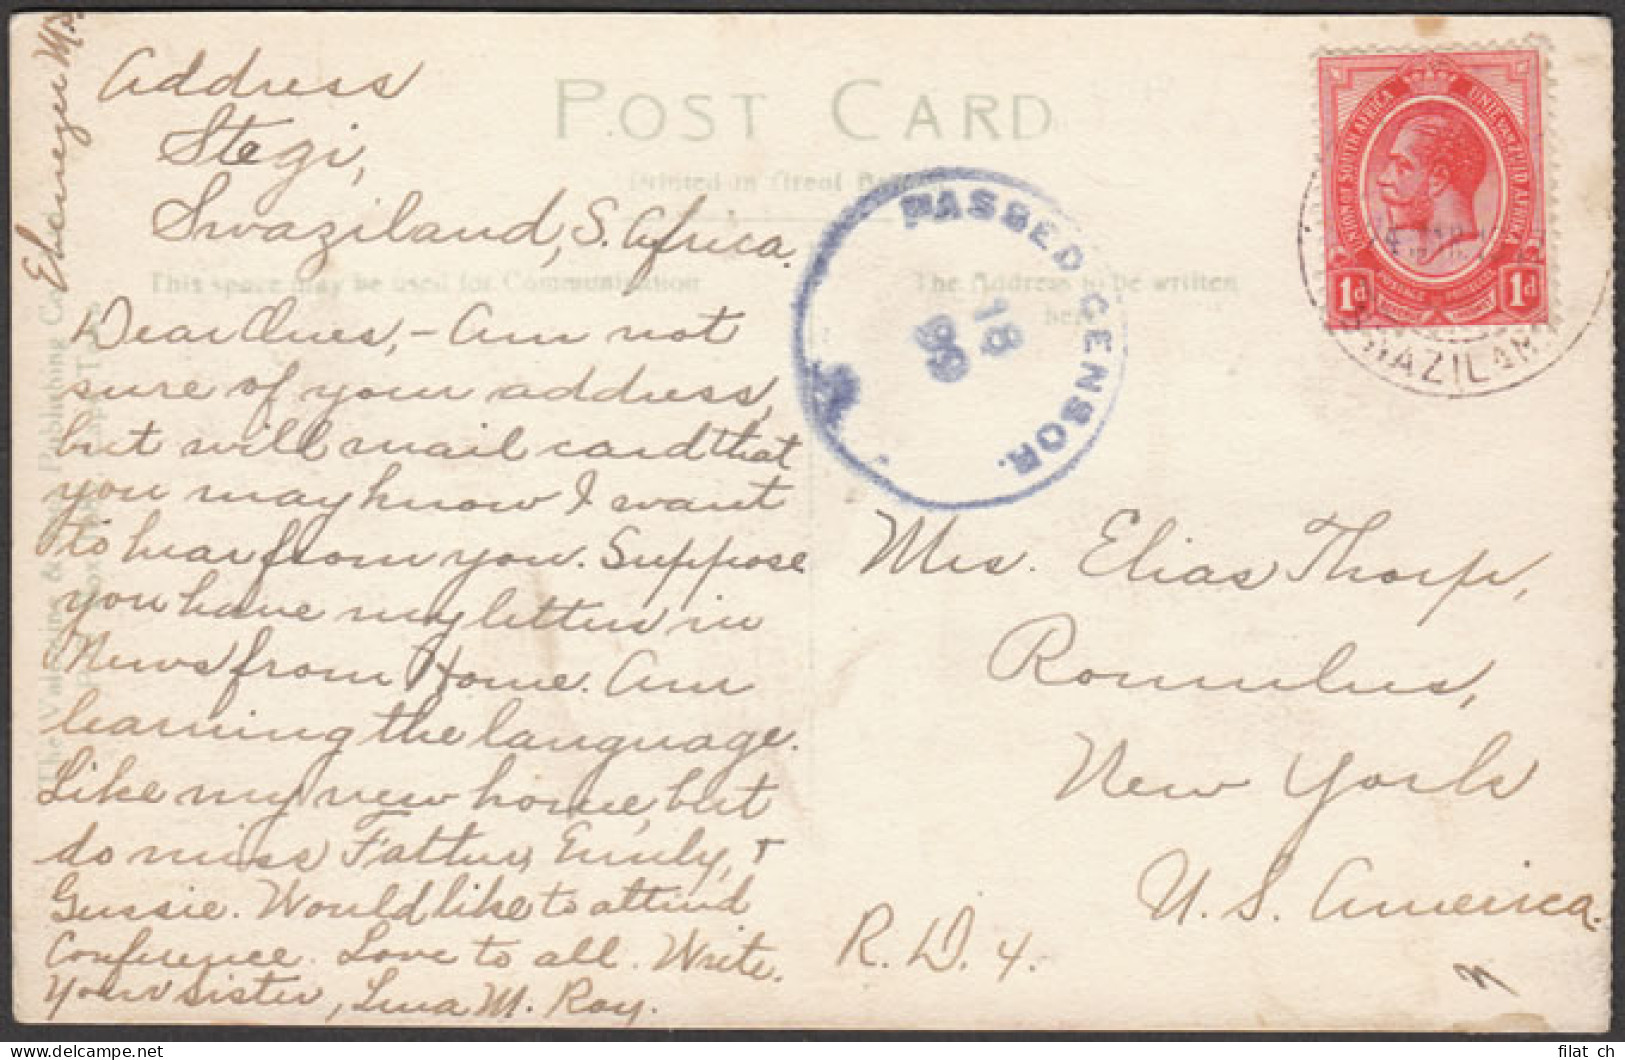 Ebenezer M.
Address
Stegi,
Swaziland, S. Africa.
POST CARD
Printed in Great
This space may be used for Communication
The Address to be written
here
Dear Ones, - Am not
sure of your address,
but will mail card that
you may know I want
to hear from you. Suppose
you have my letters in
News from Home. Am
learning the language.
Like my new home, but
do miss Father, Emily, +
Gussie. Would like to attend
Conference. Love to all. Write.
Your sister, Lena M. Roy.
The Valentine & Publishing Co
PASSED CENSOR.
18
UNION OF SOUTH AFRICA
UNIE VAN ZUID AFRIKA
1d 1d
POSTAGE
SWAZILAN
Mrs. Elias Thorp,
Romulus,
New York
U. S. America.
R. D. 4.
filat ch